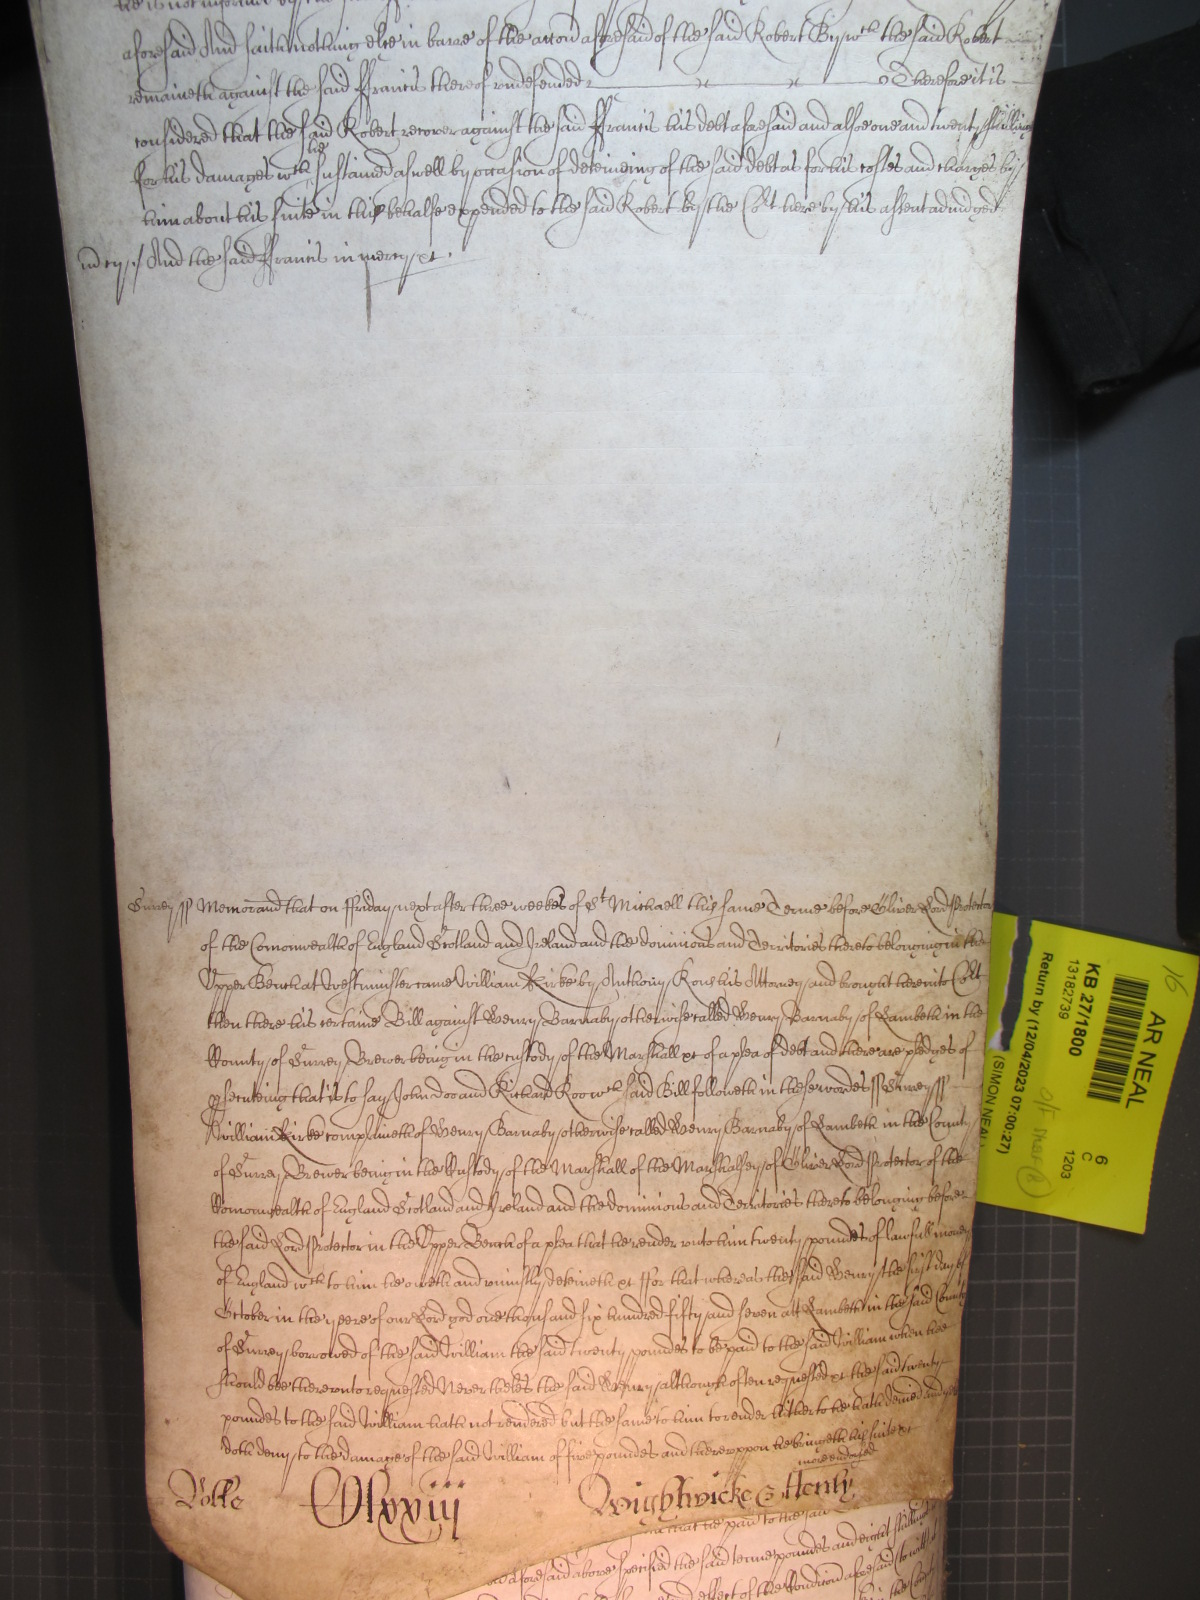 he is not informed by the said
aforesaid And saith nothing else in barre of the accon aforesaid of the said Robert By wch the said Robert
remaineth against the said ffrancis thereof undefended Therefore it is
considered that the said Robert recover against the said ffrancis his debt aforesaid and alsoe one and twenty shillings
for his damages wch he sustained aswell by occasion of deteineing of the said debt as for his costes and charges by
him about his suite in this behalfe expended to the said Robert by the Cort here by his assent adiudged
And the said ffrancis in mercy &c.
Surrey ss Memorand that on ffriday next after three weekes of St Michaell this same Terme before Oliver Lord Protector
of the Comonwealth of England Scotland and Ireland and the dominions and Territories thereto belonging in the
Upper Bench at Westminster came William Kirke by Anthony his Attorney and brought here into Cort
then there his certaine Bill against Henry Barnaby otherwise called Henry Barnaby of Lambeth in the
County of Surrey Brewer being in the custody of the Marshall &c of a plea of debt and there are pledges of
prsecuteing that is to say John Doo and Richard Roo wch said Bill followeth in these wordes ss Surrey ss
William Kirke complaineth of Henry Barnaby otherwise called Henry Barnaby of Lambeth in the County
of Surrey Brewer being in the Custody of the Marshall of the Marshalsey of Oliver Lord Protector of the
Comonwealth of England Scotland and Ireland and the dominions and Territories thereto belonging before
the said Lord Protector in the Upper Bench of a plea that he render unto him twenty poundes of lawfull money
of England wch to him he oweth and uniustly deteineth &c ffor that whereas the said Henry the first day of
October in the yeere of our Lord god one thousand six hundred fifty and seven att Lambeth in the said County
of Surrey borrowed of the said William the said twenty poundes to be paid to the said William when hee
should bee thereunto requested Neverthelesse the said Henry although often requested &c the said twenty
poundes to the said William hath not rendered but the same to him to render hitherto he hath denied and yet
doth deny to the damage of the said William of five poundes and thereuppon he bringeth his suite &c
more endorsed
Rolle Clxxiij Wightwicke & Henly
that he paid to the said
aforesaid above specified the said tenne poundes and eight shillings
and effect of the Condicon aforesaid
AR NEAL
KB 27/1800
13182739
Return by (12/04/2023 07:00:27)
(SIMON NEAL)
6
C
1203
16